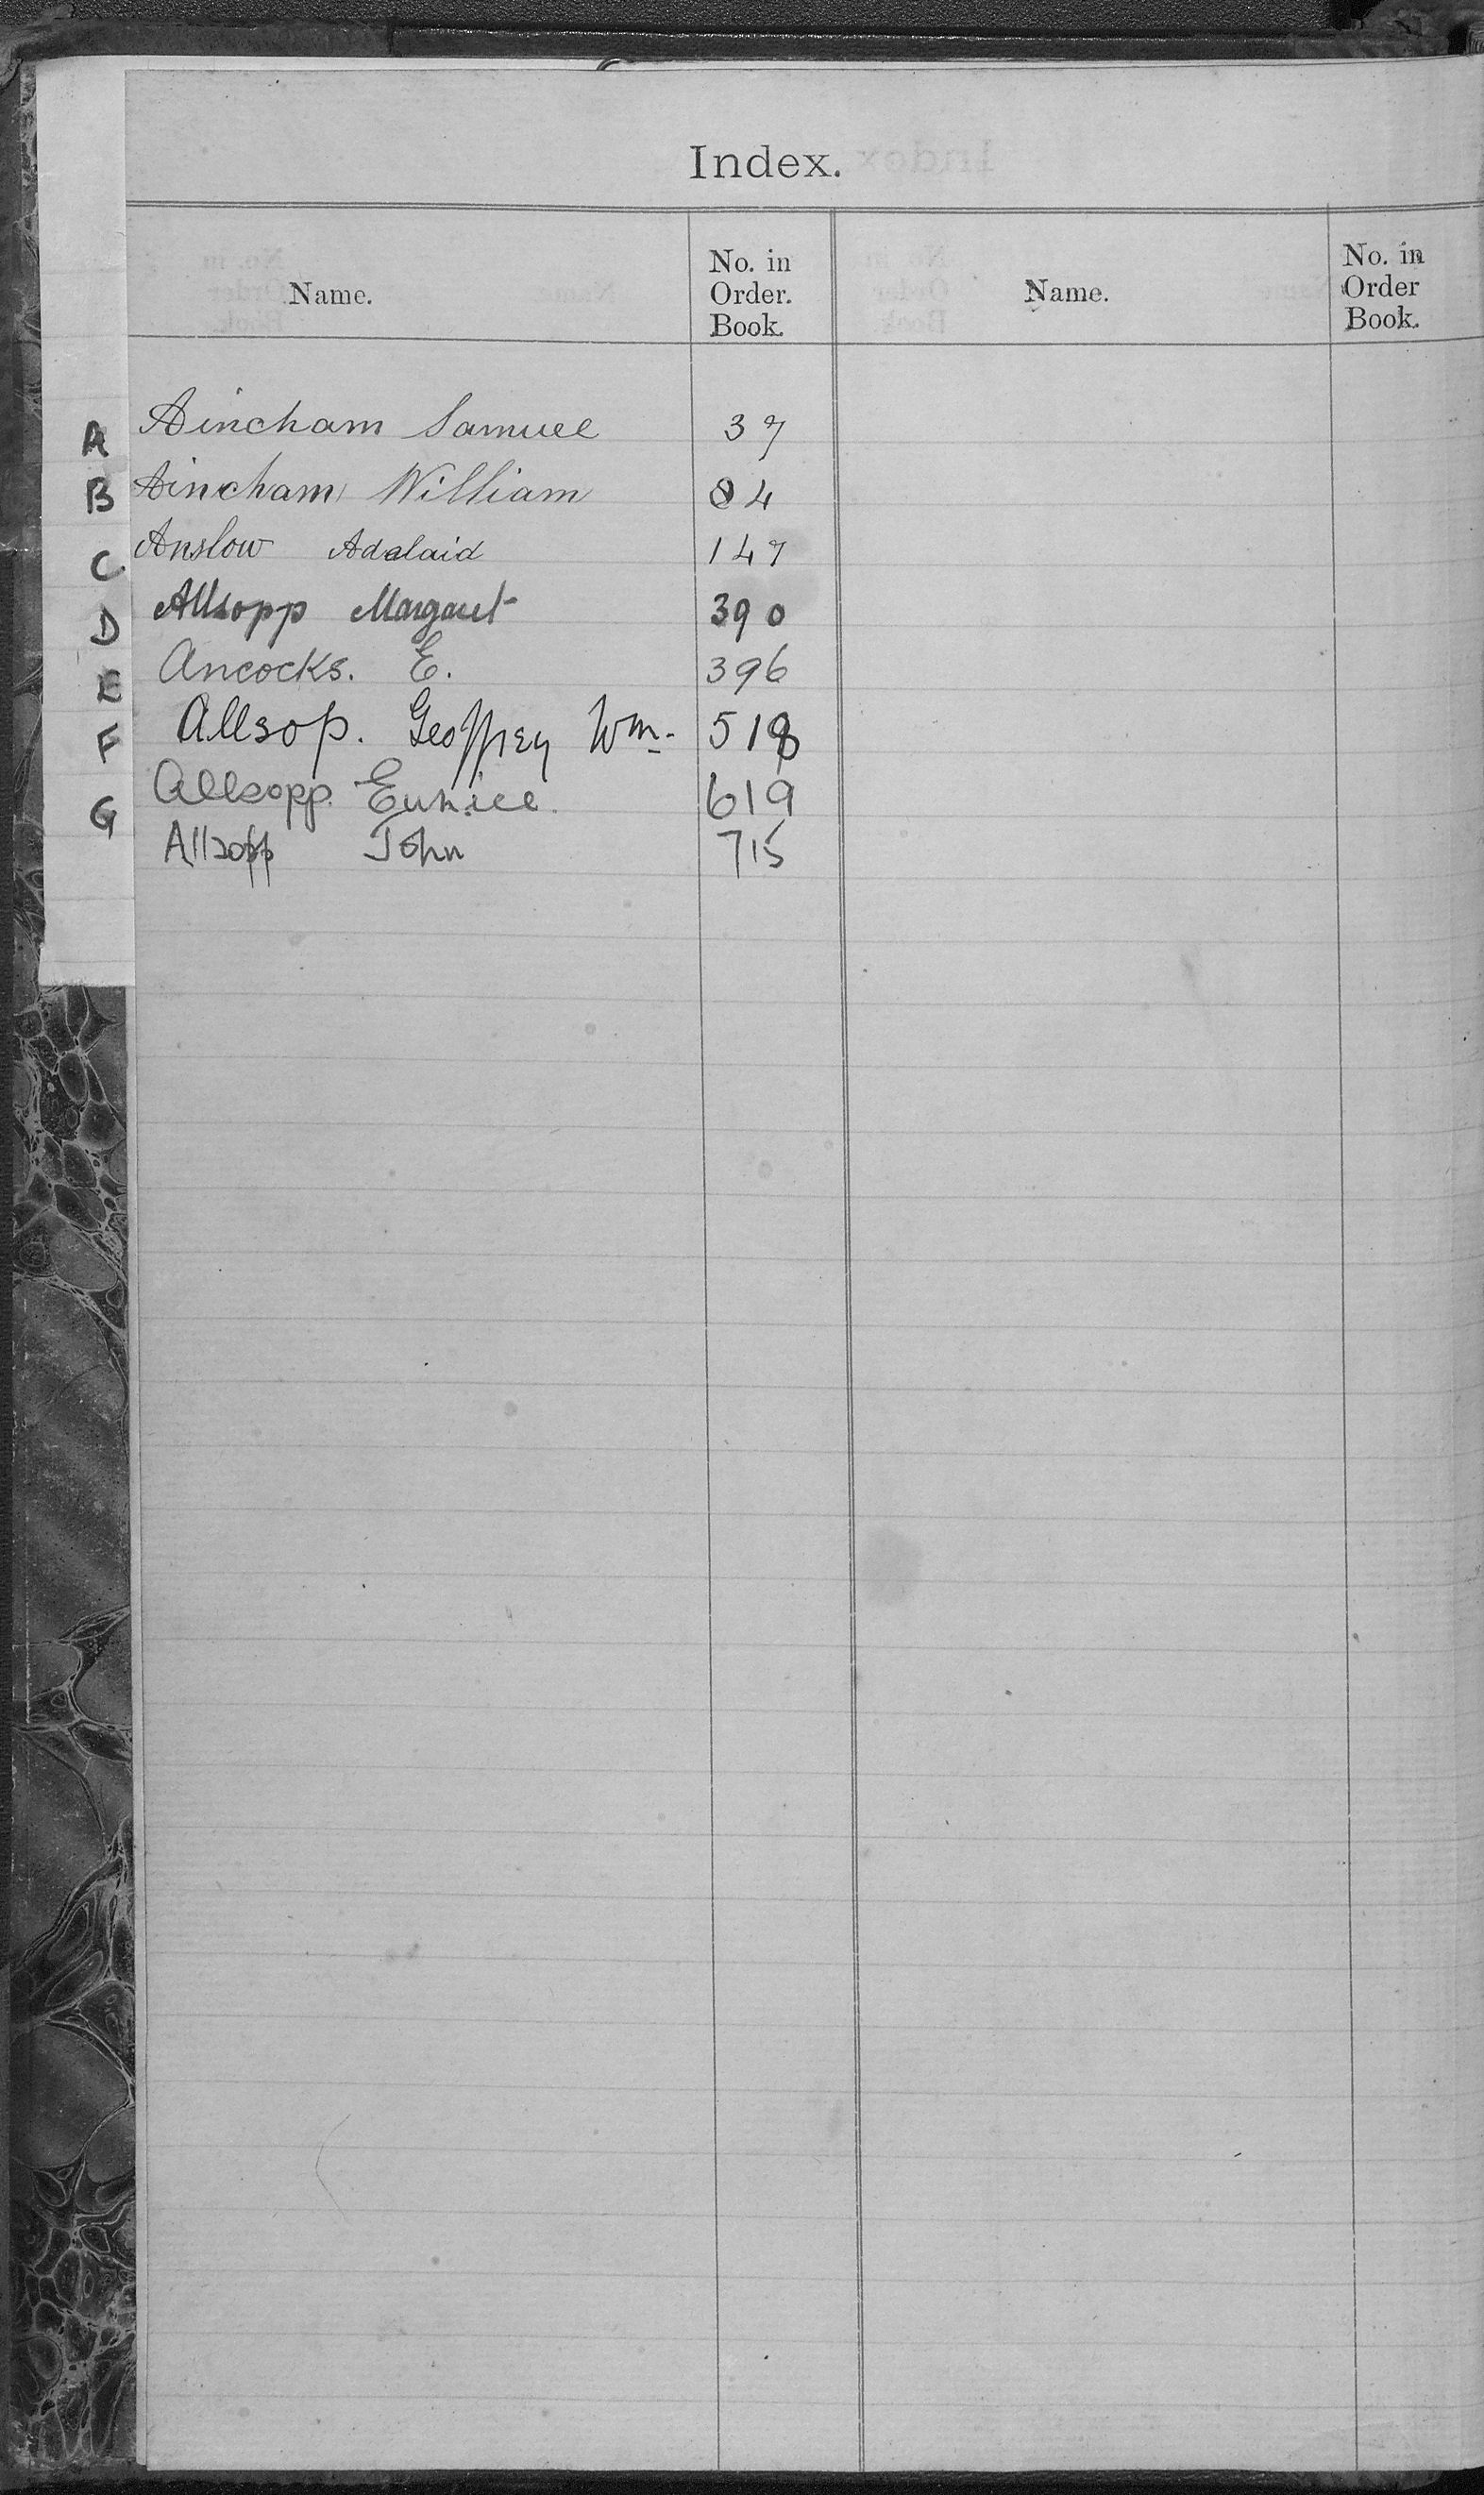 Index.
Name. No. in Order. Book. Name. No. in Order Book.
A Aincham Samuel 37
B Aincham William 84
C Anslow Adalaid 147
D Allsopp Margaret 390
E Ancocks. E. 396
F Allsop. Geoffrey Wm. 518
G Allsopp. Eunice. 619
Allsopp John 715